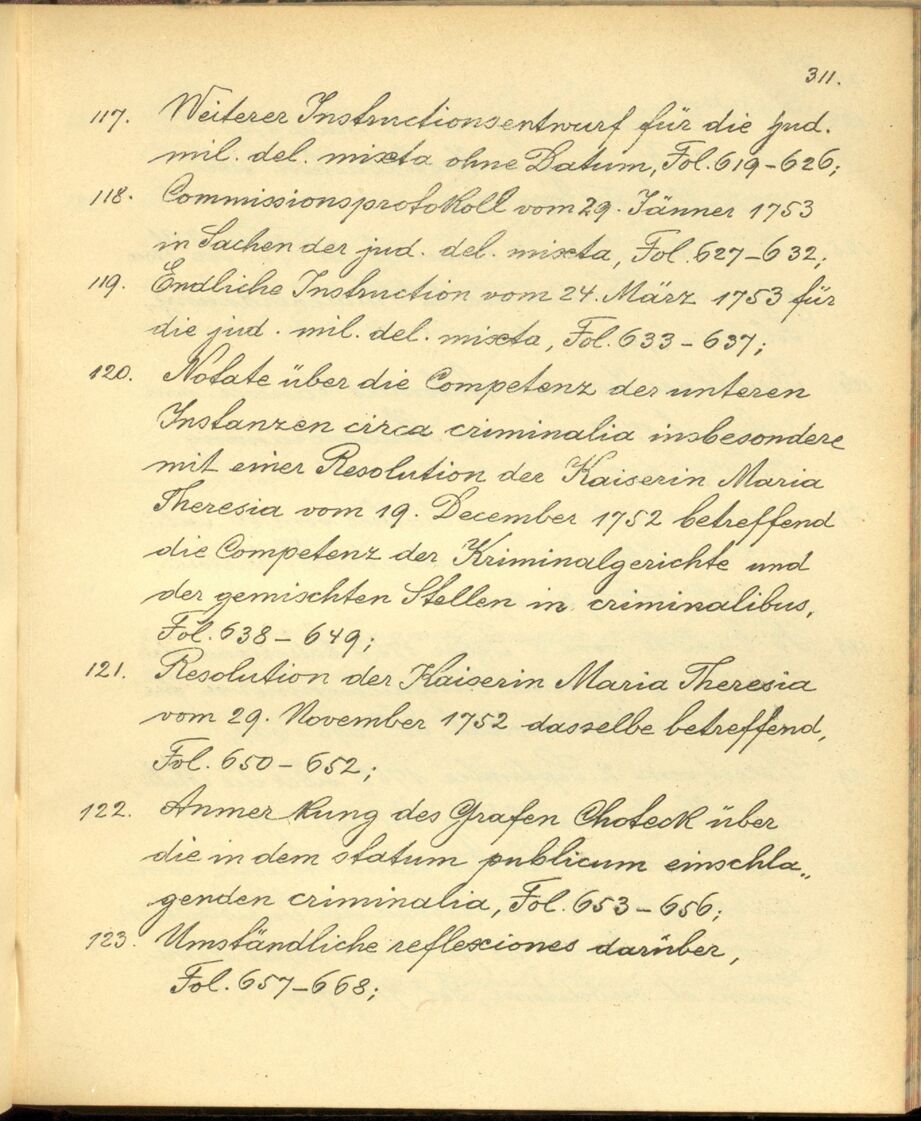 311.
117. Weiterer Instructionsentwurf für die jud.
mil. del. mixta ohne Datum, Fol. 619-626;
118. Commissionsprotokoll vom 29. Jänner 1753
in Sachen der jud. del. mixta, Fol. 627-632;
119. Endliche Instruction vom 24. März 1753 für
die jud. mil. del. mixta, Fol. 633-637;
120. Notate über die Competenz der unteren
Instanzen circa criminalia insbesondere
mit einer Resolution der Kaiserin Maria
Theresia vom 19. December 1752 betreffend
die Competenz der Kriminalgerichte und
der gemischten Stellen in criminalibus,
Fol. 638-649;
121. Resolution der Kaiserin Maria Theresia
vom 29. November 1752 dasselbe betreffend,
Fol. 650-652;
122. Anmerkung des Grafen Choteck über
die in dem statum publicum einschla„
genden criminalia, Fol. 653-656;
123. Umständliche reflexiones darüber,
Fol. 657-668;